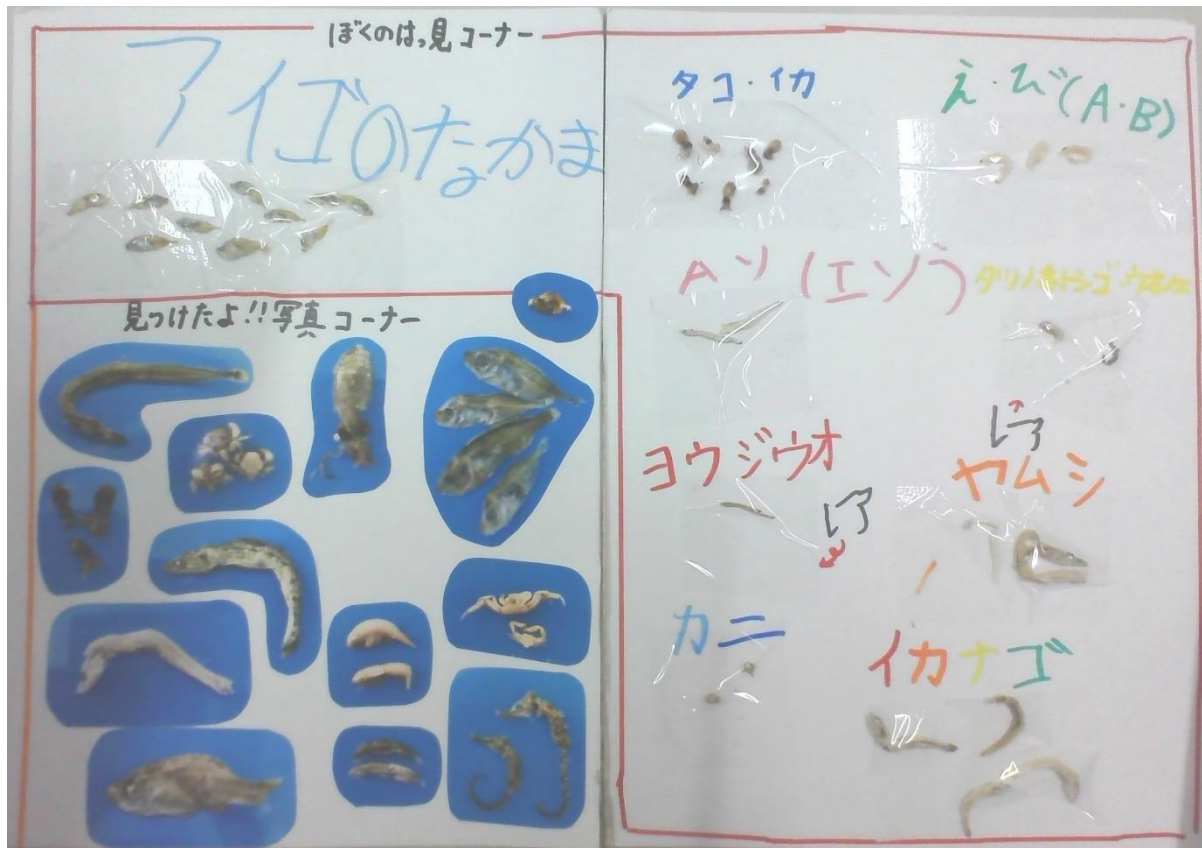 ぼくのはっ見コーナー
アイゴのなかま
見つけたよ!!写真コーナー
タコ・イカ
え・び(A・B)
タツノオトシゴ
ヨウジウオ
レア
レア
ヤムシ
カニ
イカナゴ